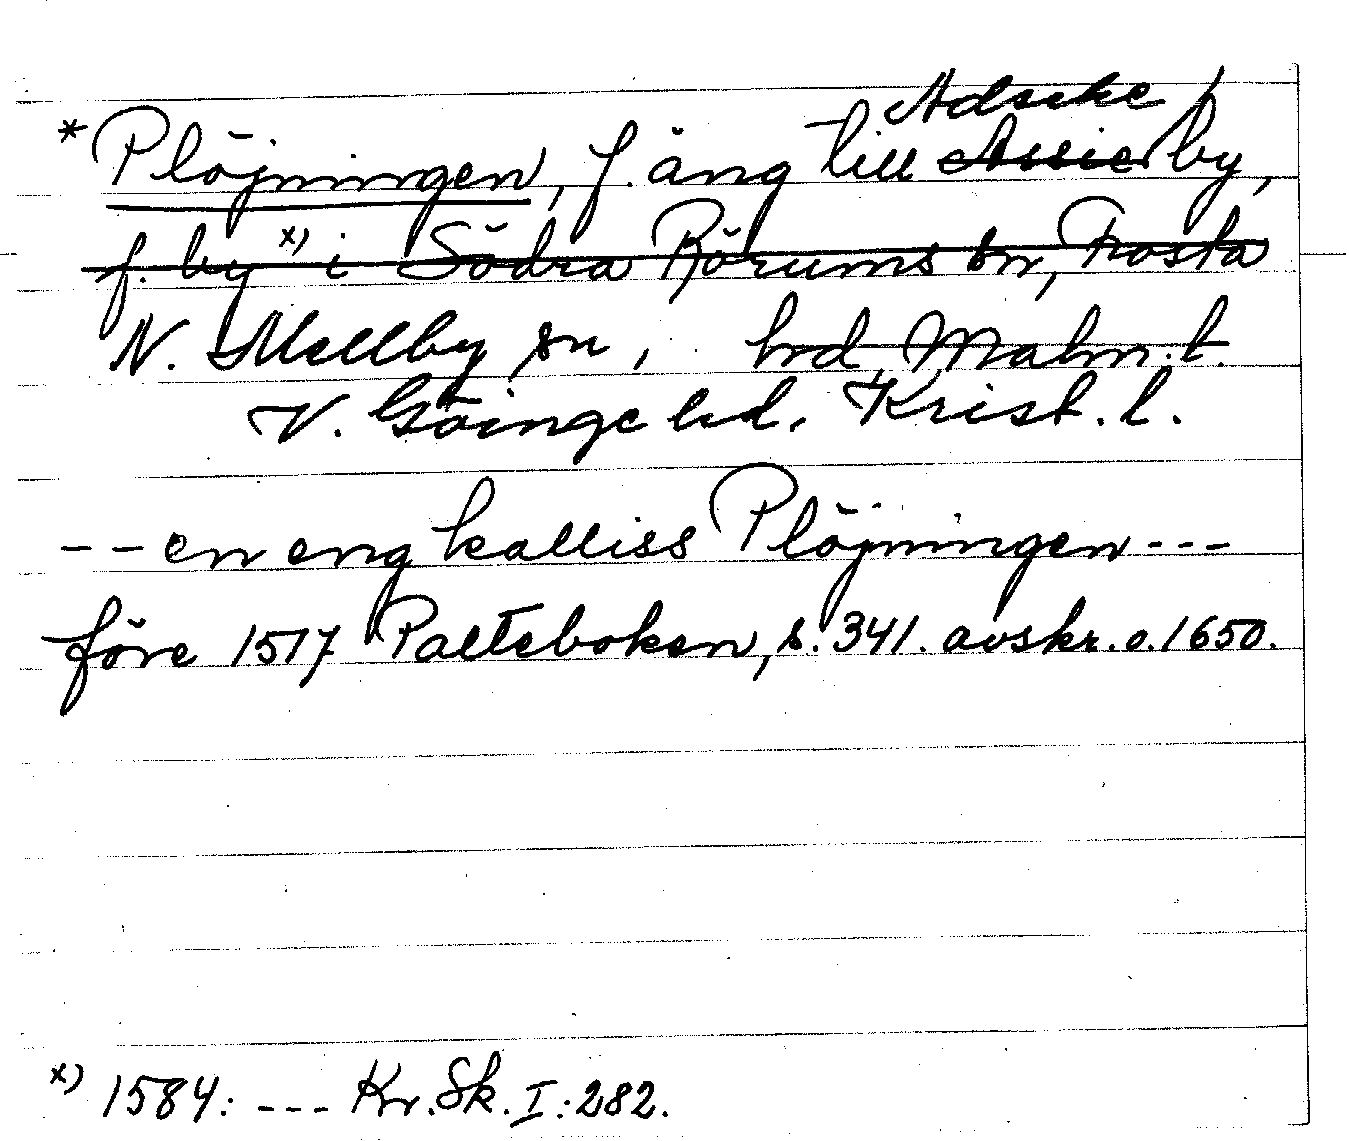 Adseke
* Plöjningen, f. äng till Assie by,
f. by x) i Södra Rörums sn, Frosta
N. Mellby sn, hrd, Malm. l.
V. Göinge hd, Krist. l.
-- en eng kalliss Plöjningen ---
före 1517 Palteboken, s. 341. avskr. o. 1650.
x) 1584: --- Kr. Sk. I: 282.